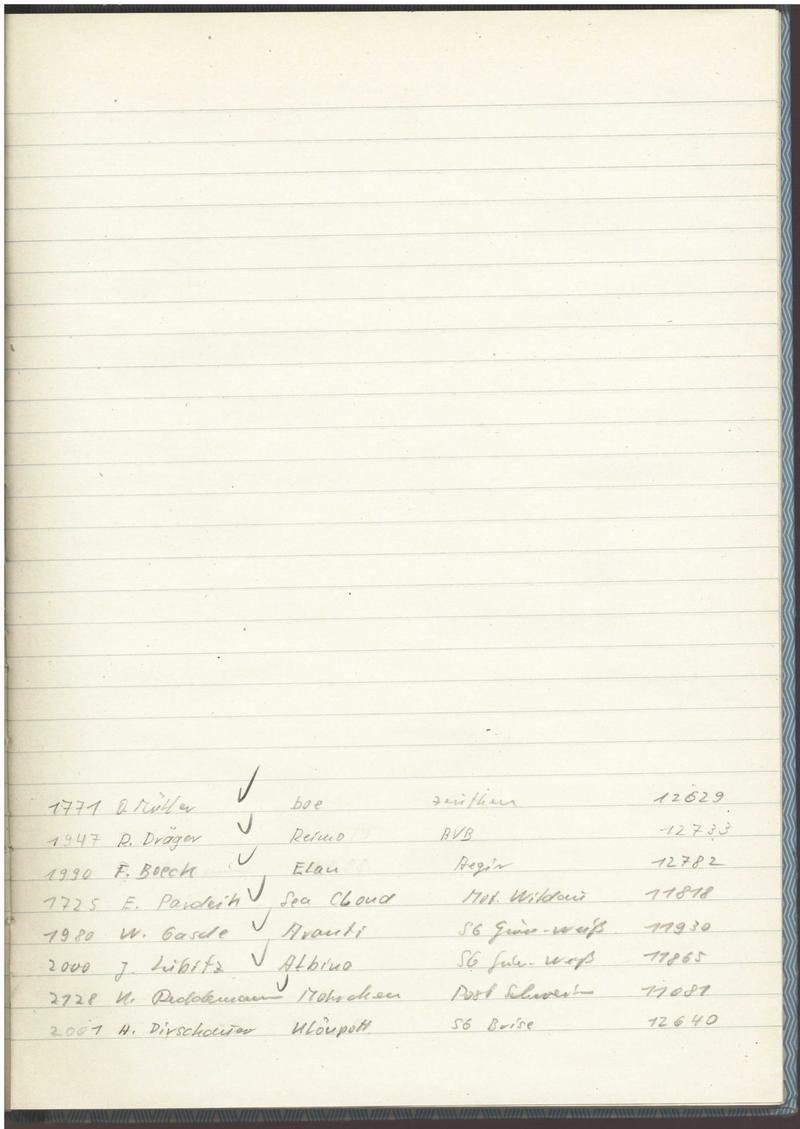 1771 D. Müller ✓ boe Zeuthen 12629
1947 R. Dräger ✓ Reimo AVB 12733
1990 F. Boeck ✓ Elan Aegir 12782
1725 E. ✓ Sea Cloud Mot. Wildau 11818
1980 W. Gasde ✓ Avanti SG Grün-Weiß 11930
2000 J. Lübitz ✓ Albino SG Grün-Weiß 11865
2128 ✓ Mohrchen Post Schwerin 11081
2001 H. Dirschauer Klönpott SG Brise 12640